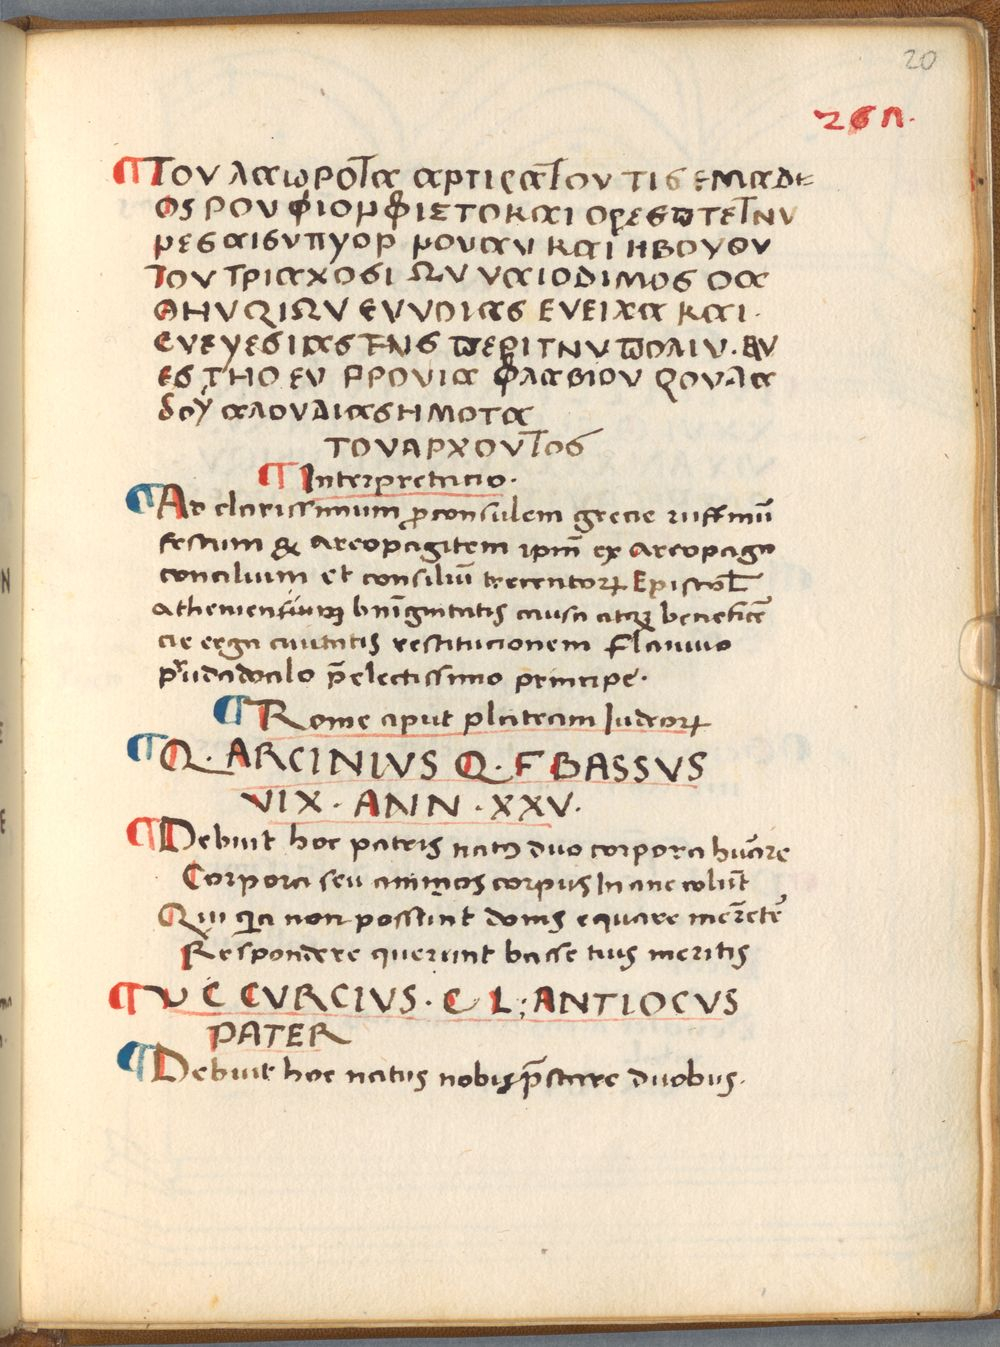 20
26 n.
Τον λαωροτα αρτιςατον τις εμαδε
ος ρον φιομ φιςτοκαι ορεςϖτετνν
μεςαιςνπνορ μοναν και ηβονθν
Τον τριαχοσι ων ναιοδιμος οα
θηνqιων εννοιας ενειχα και.
ενενεςιας της ϖεριτην ϖολιν. εν
ες τηο εν ρρονια φλαβιον qονλα
δον αλονδιαςημοτα
τοναρχοντος
Interpretacio.
Ad clarissimum ꝓconsulem grecie ruffinū
festum & areopagitem ipm̄ ex areopago
concilium et consiliū trecentoꝝ Episcol̄
atheniensium bnīgnitatis causa atqꝫ beneficē
cie erga ciuitatis restitucionem Flaviuo
pͬudadoalo p̄electissimo principe.
Rome aput plateam Iudeoꝝ
Q. ARCINIVS Q. F BASSVS
VIX. ANN. XXV.
Debuit hoc patris natꝰ duo corpora huāre
Corpora seu animos corpus Inane colunt
Qui qa non possunt donis equare merētē
Respondere querunt basse tuis meritis
V C CVRCIVS. C L; ANTIOCVS
PATER
Debuit hoc natus nobis p̄stare duobus.